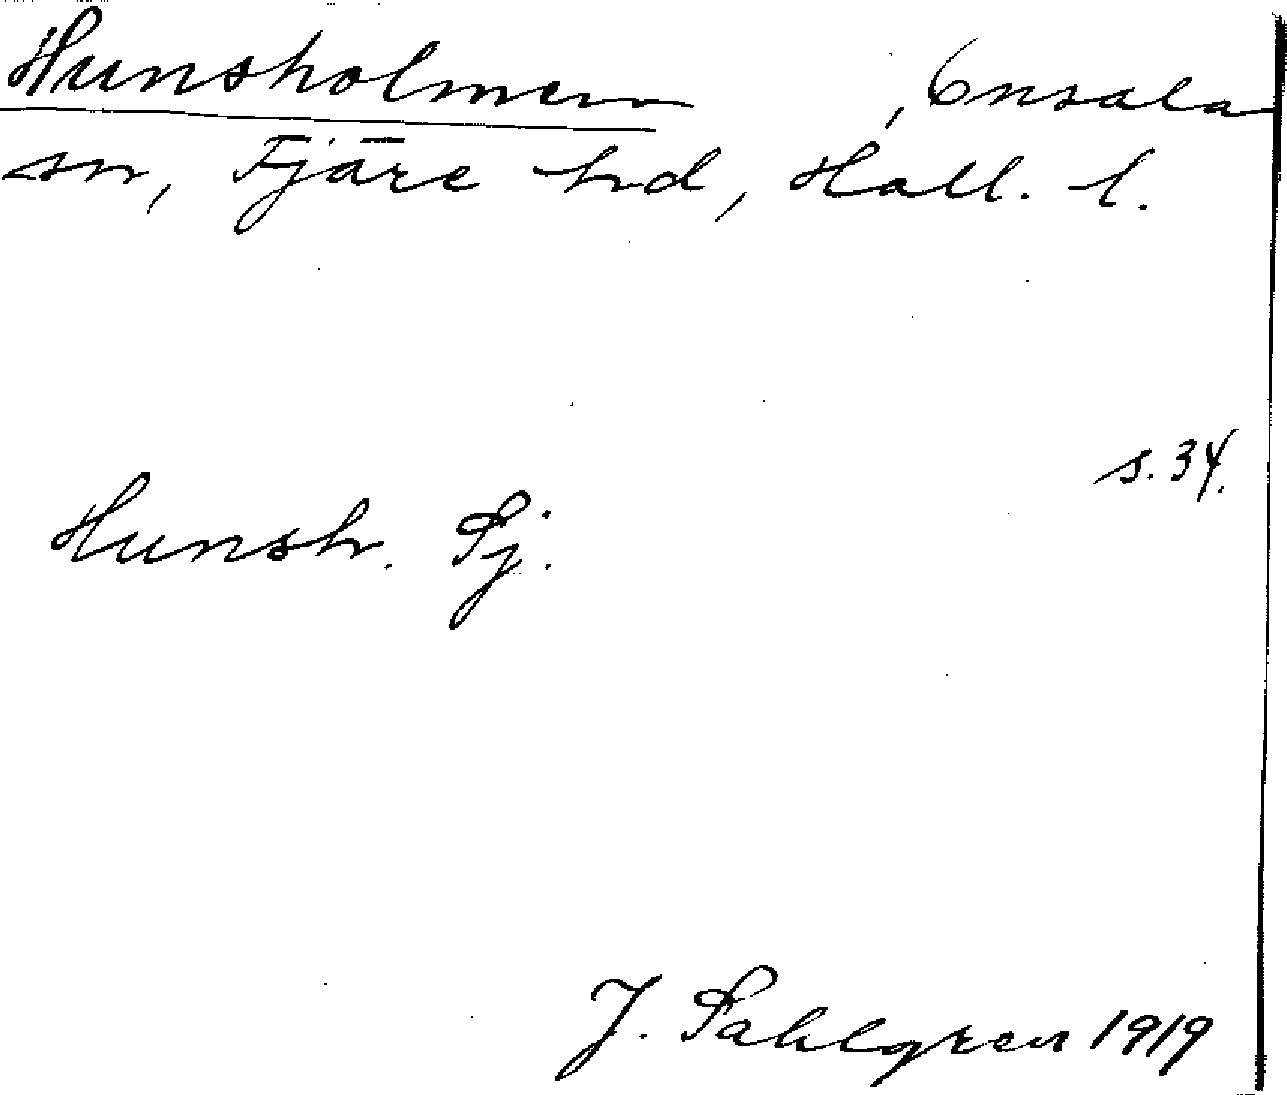 Hunsholmen , Onsala
sn, Fjäre hd, Hall. l.
s. 34.
Hunsh. Sj.
J. Sahlgren 1919